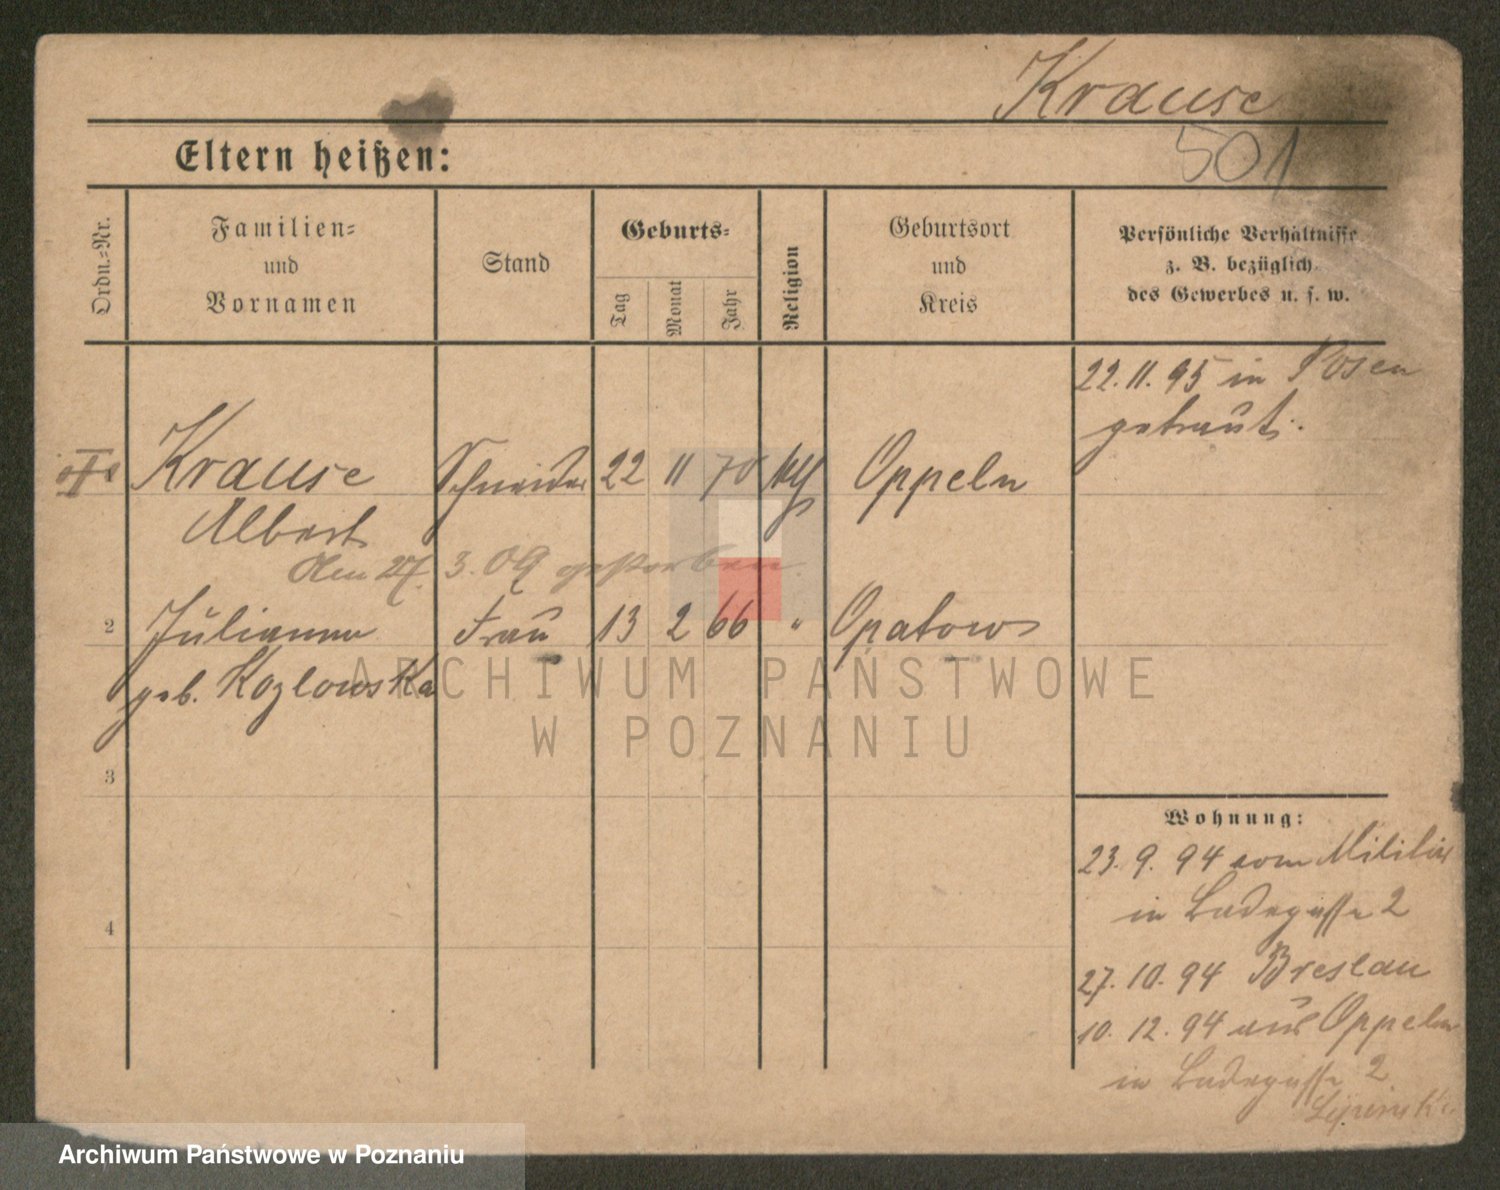 Krause
501
Eltern heißen:
Ordn.-Nr.
Familien-
und
Vornamen
Stand
Geburts-
Tag
Monat
Jahr
Religion
Geburtsort
und
Kreis
Persönliche Verhältnisse
z. B. bezüglich
des Gewerbes u. s. w.
22. 11. 95 in Posen
getraut.
Krause Schneider 22 11 70 Oppeln
Albert
den 27. 3. 09 gestorben.
2 Julianna Frau 13 2 66 " Opatow
geb. Kozlowska
3
4
Wohnung:
23. 9. 94 vom Militär
in Badegasse 2
27. 10. 94 Breslau
10. 12. 94 aus Oppeln
in Badegasse 2
ARCHIWUM PAŃSTWOWE
W POZNANIU
Archiwum Państwowe w Poznaniu